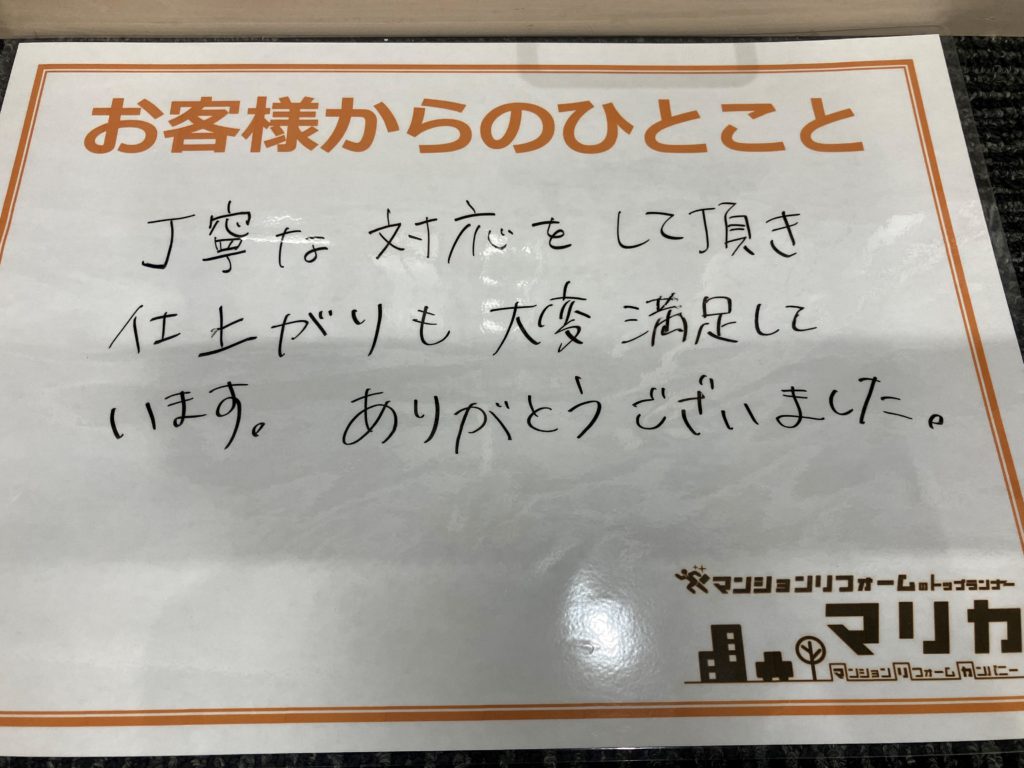 お客様からのひとこと
丁寧な対応をして頂き
仕上がりも大変満足して
います。ありがとうございました。
マンションリフォームのトップランナー
マリカ
マンションリフォームカンパニー